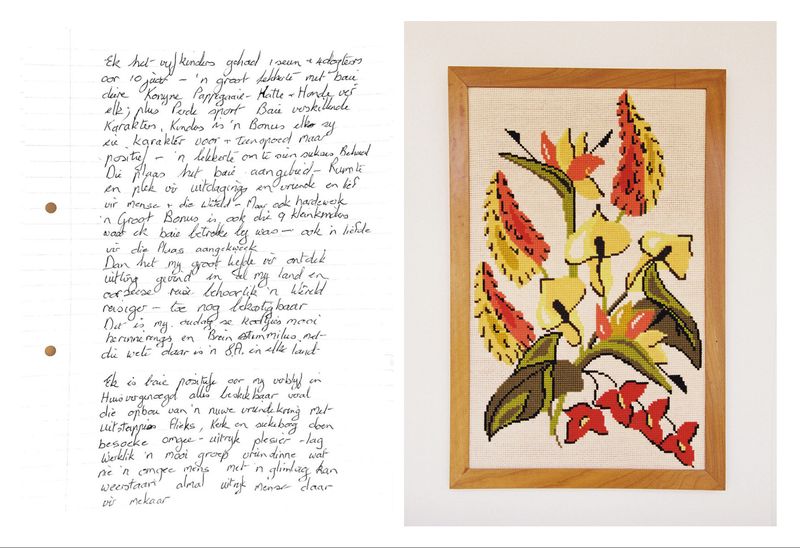 Ek het vyf kinders gehad 1 seun + 4 dogters
oor 10 jaar – 'n groot lekkerte met baie
diere Konyne Pappegaaie – Katte + Honde vir
elk; plus Perde sport Baie verskillende
Karakters, Kinders is 'n Bonus elke sy
eie karakter voor + teenspoed maar
positief – 'n lekkerte om te sien sukses, Behaal
Die plaas het baie aangebied – Ruimte
en plek vir uitdagings en vriende en lief
vir mense + die wêreld – Maar ook hardewerk
'n Groot Bonus is, ook die 9 kleinkinders
waar ek baie betrokke by was – ook 'n liefde
vir die Plaas aangekweek
Dan het my groot liefde vir ontdek
uiting gevind in al my land en
oorseese reise behoorlik 'n Wêreld
reisiger – toe nog bekostigbaar
Dit is my oudag se mooi
herinnerings en Brein stimmilus, met
die wete daar is 'n SA. in elke land
Ek is baie positief oor my verblyf in
Huisvergenoegd alles beskikbaar veral
die opbou van 'n nuwe vriendekring met
uitstappies Flieks, Kerk en siekeboeg doen
besoeke omgee – uitryk plesier – lag
Werklik 'n mooi groep vriendinne wat
nie 'n omgee mens met 'n glimlag kan
weerstaan almal uitryk mense daar
vir mekaar